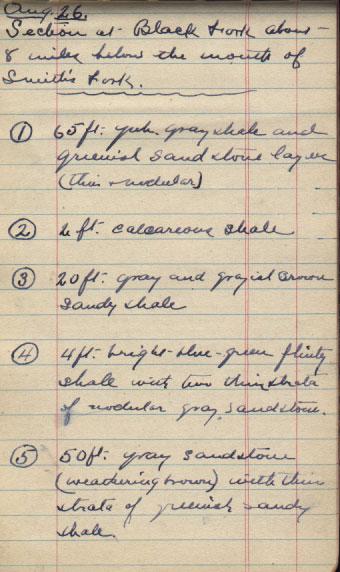 Aug. 26.
Section at Black Fork about
8 miles below the mouth of
Smith's Fork.
① 65 ft. gray shale and
greenish sandstone layer
(thin + nodular)
② 2 ft. calcareous shale
③ 20 ft. gray and grayish brown
sandy shale
④ 4 ft. bright-blue-green flinty
shale with two thin strata
of nodular gray sandstone.
⑤ 50 ft. gray sandstone
(weathering brown) with thin
strata of greenish sandy
shale.